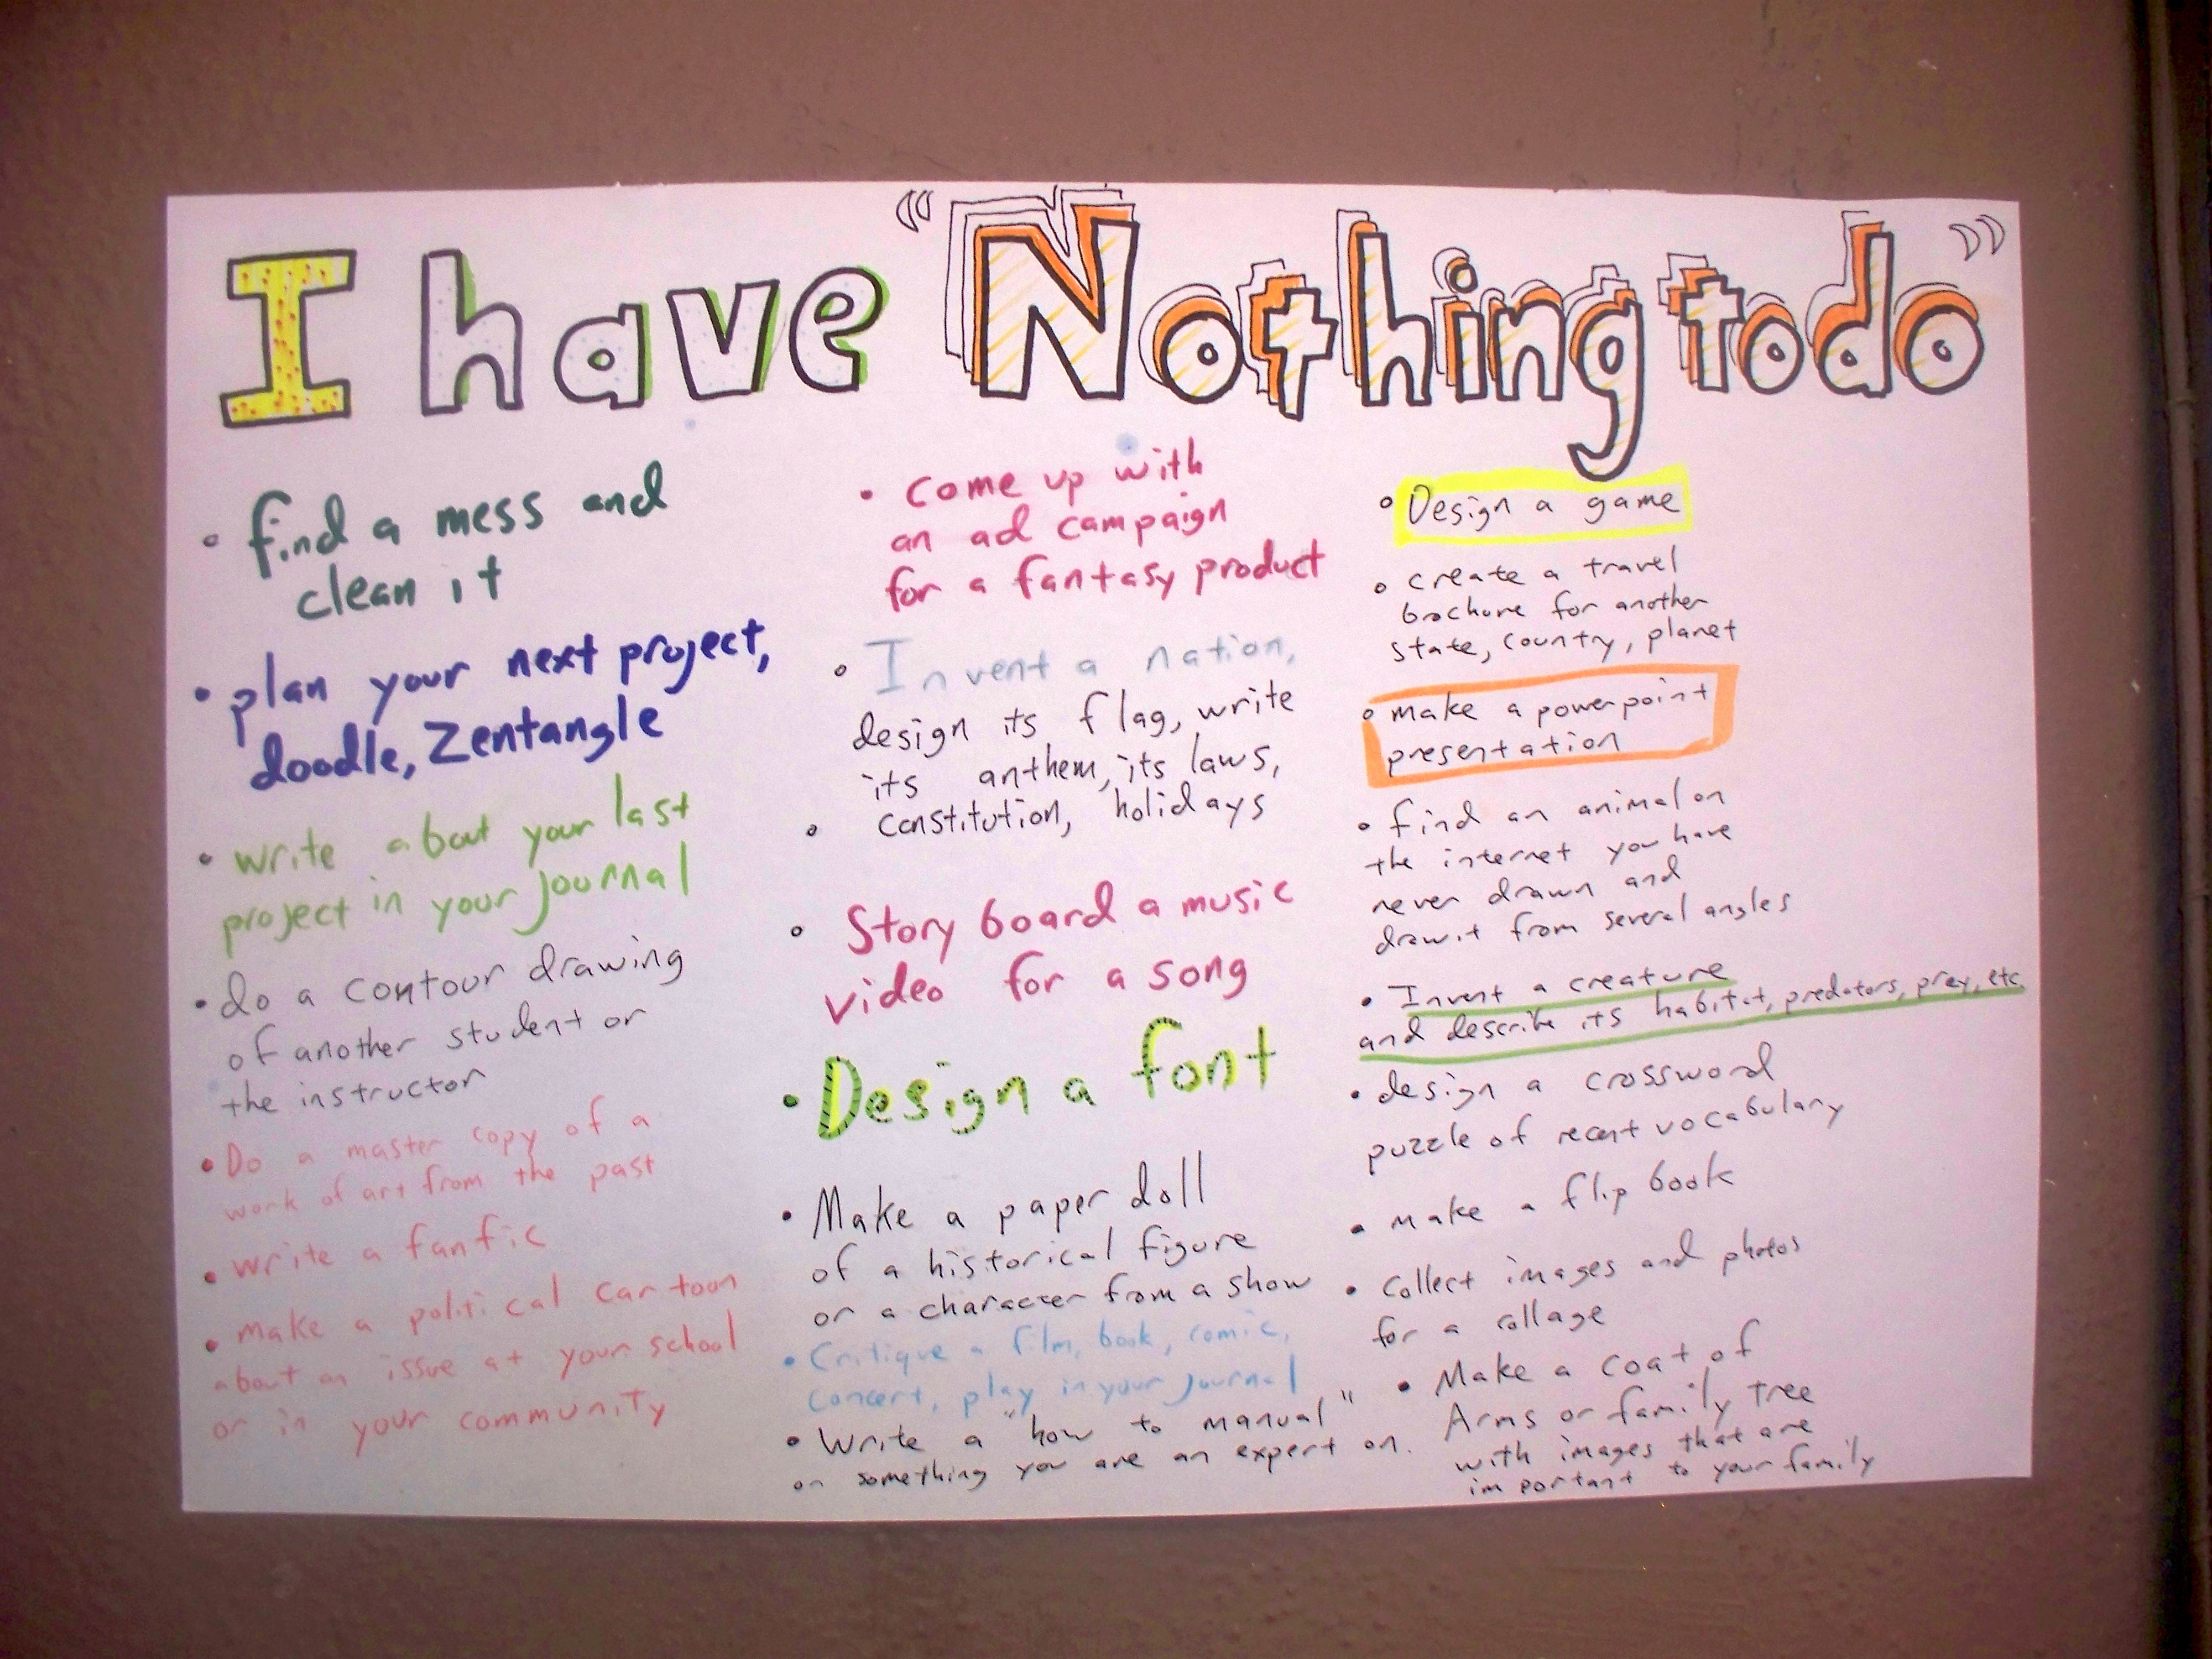 I have "Nothing to do"
• find a mess and
clean it
• plan your next project,
doodle, Zentangle
• write about your last
project in your journal
• do a contour drawing
of another student or
the instructor
• Do a master copy of a
work of art from the past
• write a fanfic
• make a political cartoon
about an issue at your school
or in your community
• come up with
an ad campaign
for a fantasy product
• Invent a nation,
design its flag, write
its anthem, its laws,
• constitution, holidays
• Story board a music
video for a song
• Design a font
• Make a paper doll
of a historical figure
or a character from a show
• Critique a film, book, comic,
concert, play in your journal
• Write a "how to manual"
on something you are an expert on.
• Design a game
• create a travel
brochure for another
state, country, planet
• make a powerpoint
presentation
• find an animal on
the internet you have
never drawn and
draw it from several angles
• Invent a creature
and describe its habitat, predators, prey, etc.
• design a crossword
puzzle of recent vocabulary
• make a flip book
• collect images and photos
for a collage
• Make a coat of
Arms or family tree
with images that are
important to your family